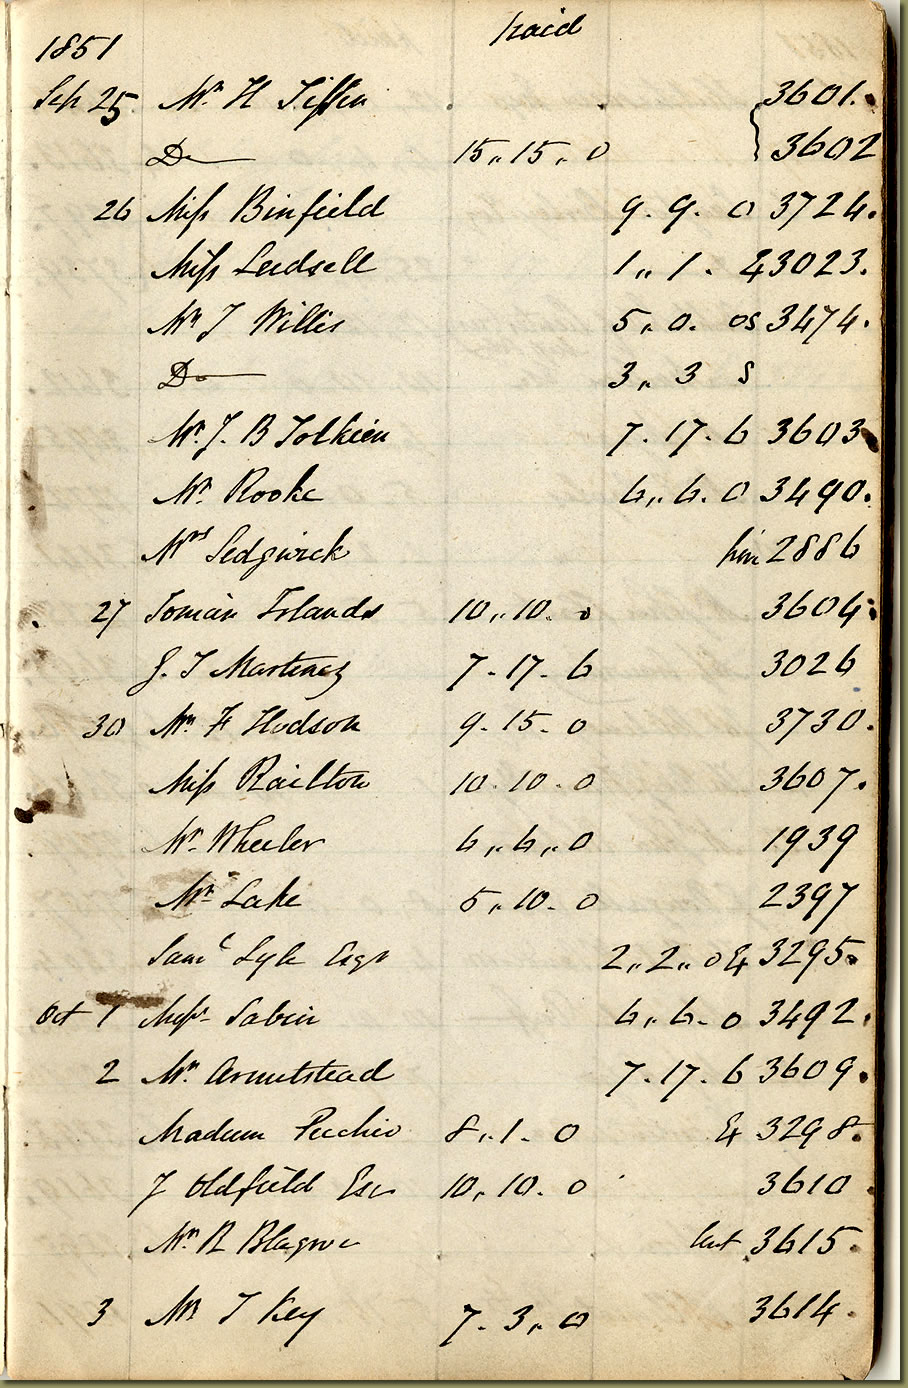 1851 paid
Sep 25 Mr. H Tiffin { 3601.
Do 15,,15,,0 3602
26 Miss Binfield 9.9.0 3724.
Miss 1,,1. 3023.
Mr J Willis 5,,0. 3474.
Do 3,,3
Mr. J. B Tolkien 7.17.6 3603
Mr. Rooke 6,,6.0 3490.
Mrs Sedgwick 2886
27 10,,10.0 3604.
G. T Martinez 7.17.6 3026
30 Mr. F Hodson 9.15.0 3730.
Miss Railton 10.10.0 3607.
Mr. Wheeler 6,,6,,0 1939
Mr. Lake 5,,10.0 2397
Saml Lyle Esqr 2,,2,,0 3295.
Oct 1 Messrs. Sabin 6,,6.0 3492.
2 Mr. Armitstead 7.17.6 3609.
Madam Puchio 8,,1.0 3298.
J Oldfield Esqr 10,,10.0 3610
Mr. R Blagrove lent 3615.
3 Mr J Key 7.3,,0 3614.